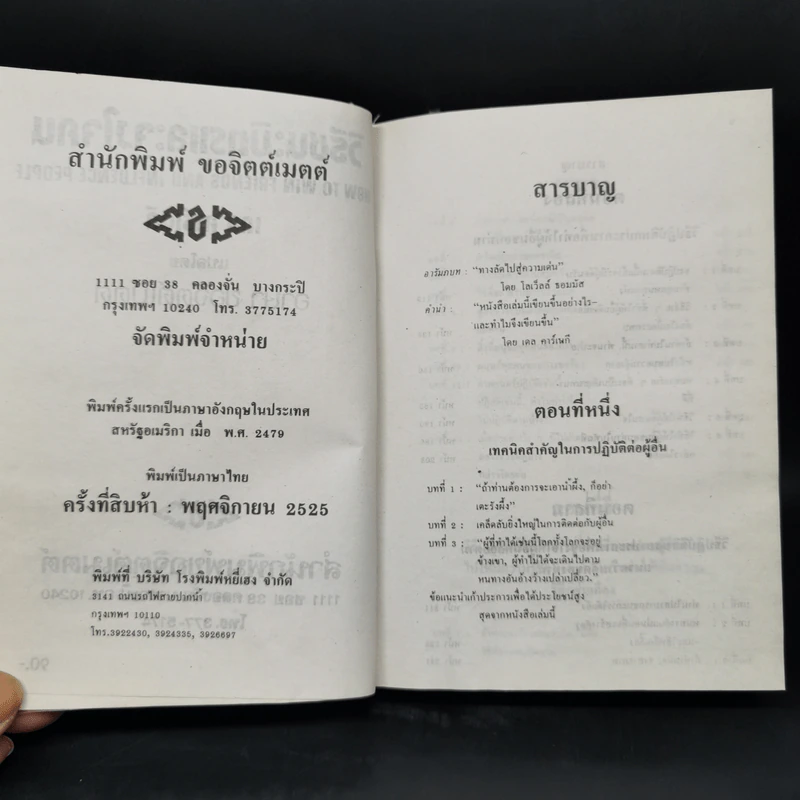 สำนักพิมพ์ ขอจิตต์เมตต์
1111 ซอย 38 คลองจั่น บางกะปิ
กรุงเทพฯ 10240 โทร. 3775174
จัดพิมพ์จำหน่าย
พิมพ์ครั้งแรกเป็นภาษาอังกฤษในประเทศ
สหรัฐอเมริกา เมื่อ พ.ศ. 2479
พิมพ์เป็นภาษาไทย
ครั้งที่สิบห้า : พฤศจิกายน 2525
พิมพ์ที่ บริษัท โรงพิมพ์หยี่เฮง จำกัด
3141 ถนนรถไฟสายปากน้ำ
กรุงเทพฯ 10110
โทร.3922430, 3924335, 3926697
สารบาญ
อารัมภบท : "ทางลัดไปสู่ความเด่น"
โดย โลเวิลล์ ธอมมัส
คำนำ : "หนังสือเล่มนี้เขียนขึ้นอย่างไร–
และทำไมจึงเขียนขึ้น"
โดย เดล คาร์เนกี
ตอนที่หนึ่ง
เทคนิคสำคัญในการปฏิบัติต่อผู้อื่น
บทที่ 1 : "ถ้าท่านต้องการจะเอาน้ำผึ้ง, ก็อย่า
เตะรังผึ้ง"
บทที่ 2 : เคล็ดลับยิ่งใหญ่ในการติดต่อกับผู้อื่น
บทที่ 3 : "ผู้ที่ทำได้เช่นนี้โลกทั้งโลกจะอยู่
ข้างเขา, ผู้ทำไม่ได้จะเดินไปตาม
หนทางอันอ้างว้างเปล่าเปลี่ยว."
ข้อแนะนำเก้าประการเพื่อได้ประโยชน์สูง
สุดจากหนังสือเล่มนี้